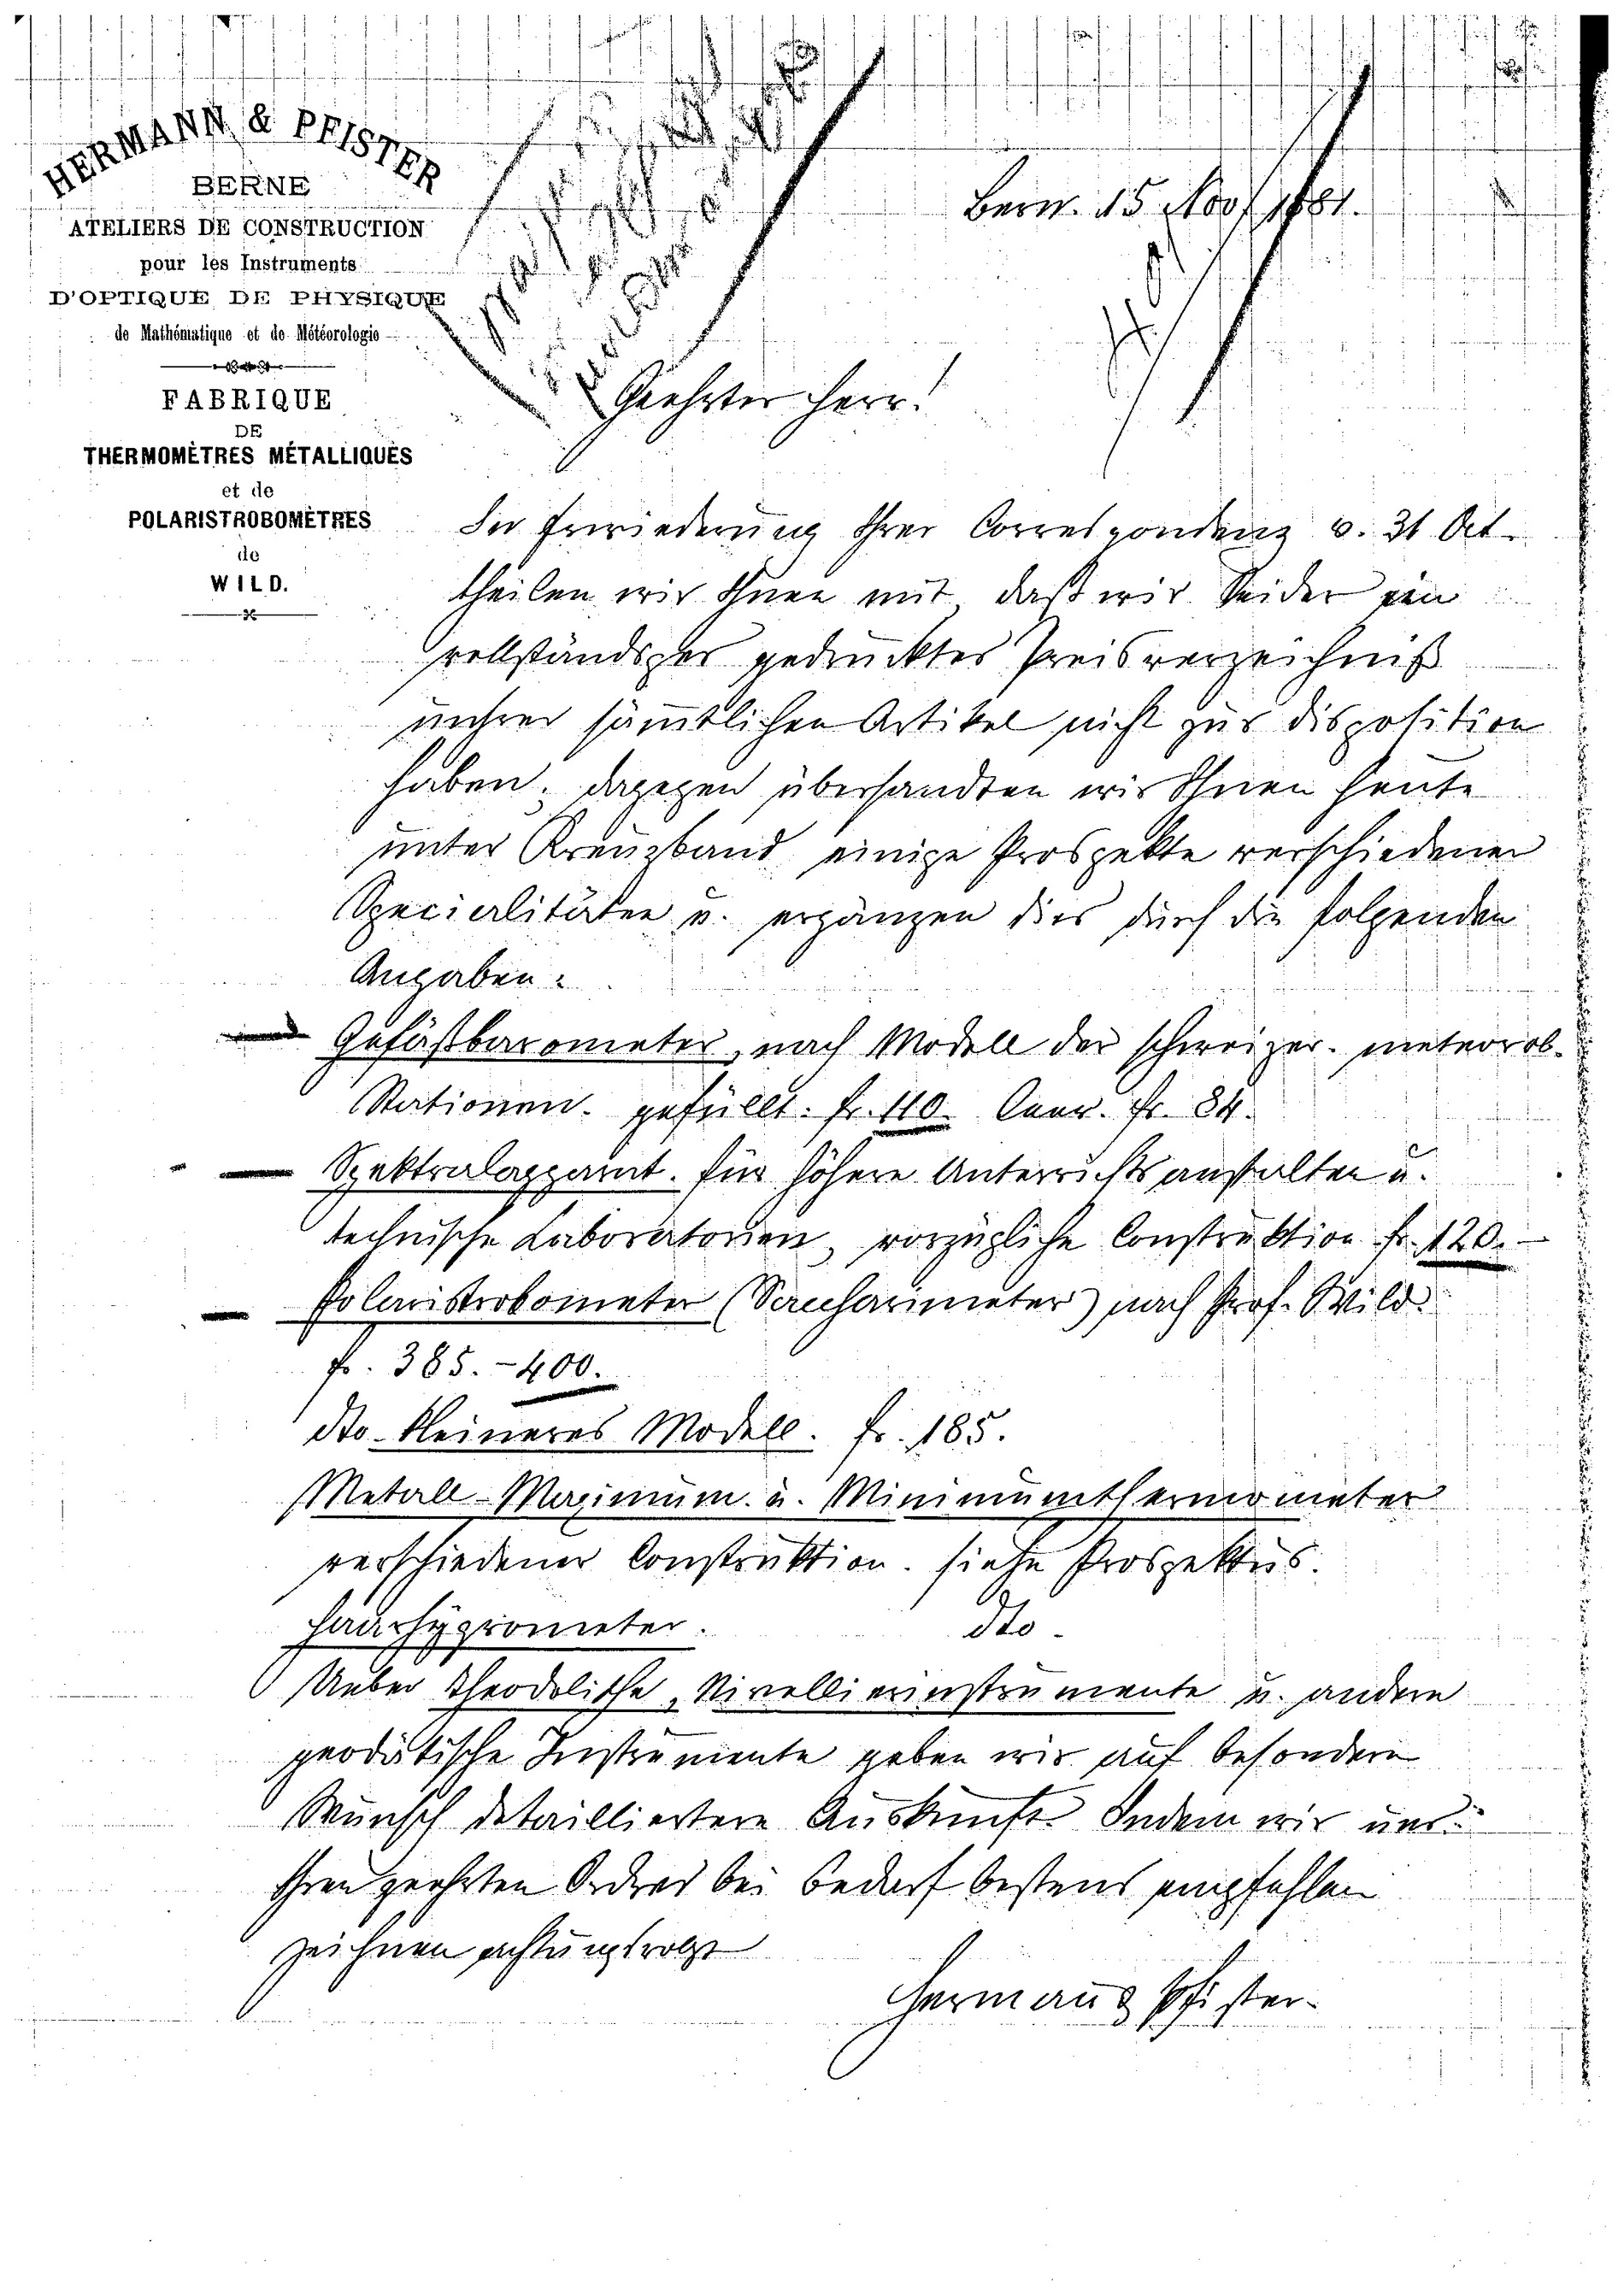 HERMANN & PFISTER
BERNE
ATELIERS DE CONSTRUCTION
pour les Instruments
D'OPTIQUE DE PHYSIQUE
de Mathématique et de Météorologie
FABRIQUE
DE
THERMOMÈTRES MÉTALLIQUES
et de
POLARISTROBOMÈTRES
de
WILD.
Bern. 15 Nov 1881.
Geehrter Herr!
In Erwiederung Ihrer Correspondenz v. 31 Oct.
theilen wir Ihnen mit, daß wir leider ein
vollständiges gedrucktes Preisverzeichniß
unsrer sämtlichen Artikel nicht zur disposition
haben; dagegen übersandten wir Ihnen heute
unter Kreuzband einige Prospekte verschiedener
Specialitäten u. ergänzen dies durch die folgenden
Angaben:
Gefäßbarometer, nach Modell der schweizer. meteorol.
Stationen. gefüllt. fr. 110. Leer. fr. 84.
Spektralapparat. für höhere Unterrichtsanstalten u.
technische Laboratorien, vorzügliche Construktion fr. 120.–
Polaristrobometer (Saccharimeter) nach Prof. Wild.
fr. 385.–400.
dto. kleineres Modell. fr. 185.
Metall-Maximum. u. Minimumthermometer
verschiedener Construktion. siehe Prospektus.
Haarhygrometer. dto.
Ueber Theodolithe, Nivellierinstrumente u. andere
geodätische Instrumente geben wir auf besondern
Wunsch detailliertere Auskunft. Indem wir uns
Ihren geehrten Ordres bei Bedarf bestens empfehlen
zeichnen achtungsvollst
Hermann & Pfister.